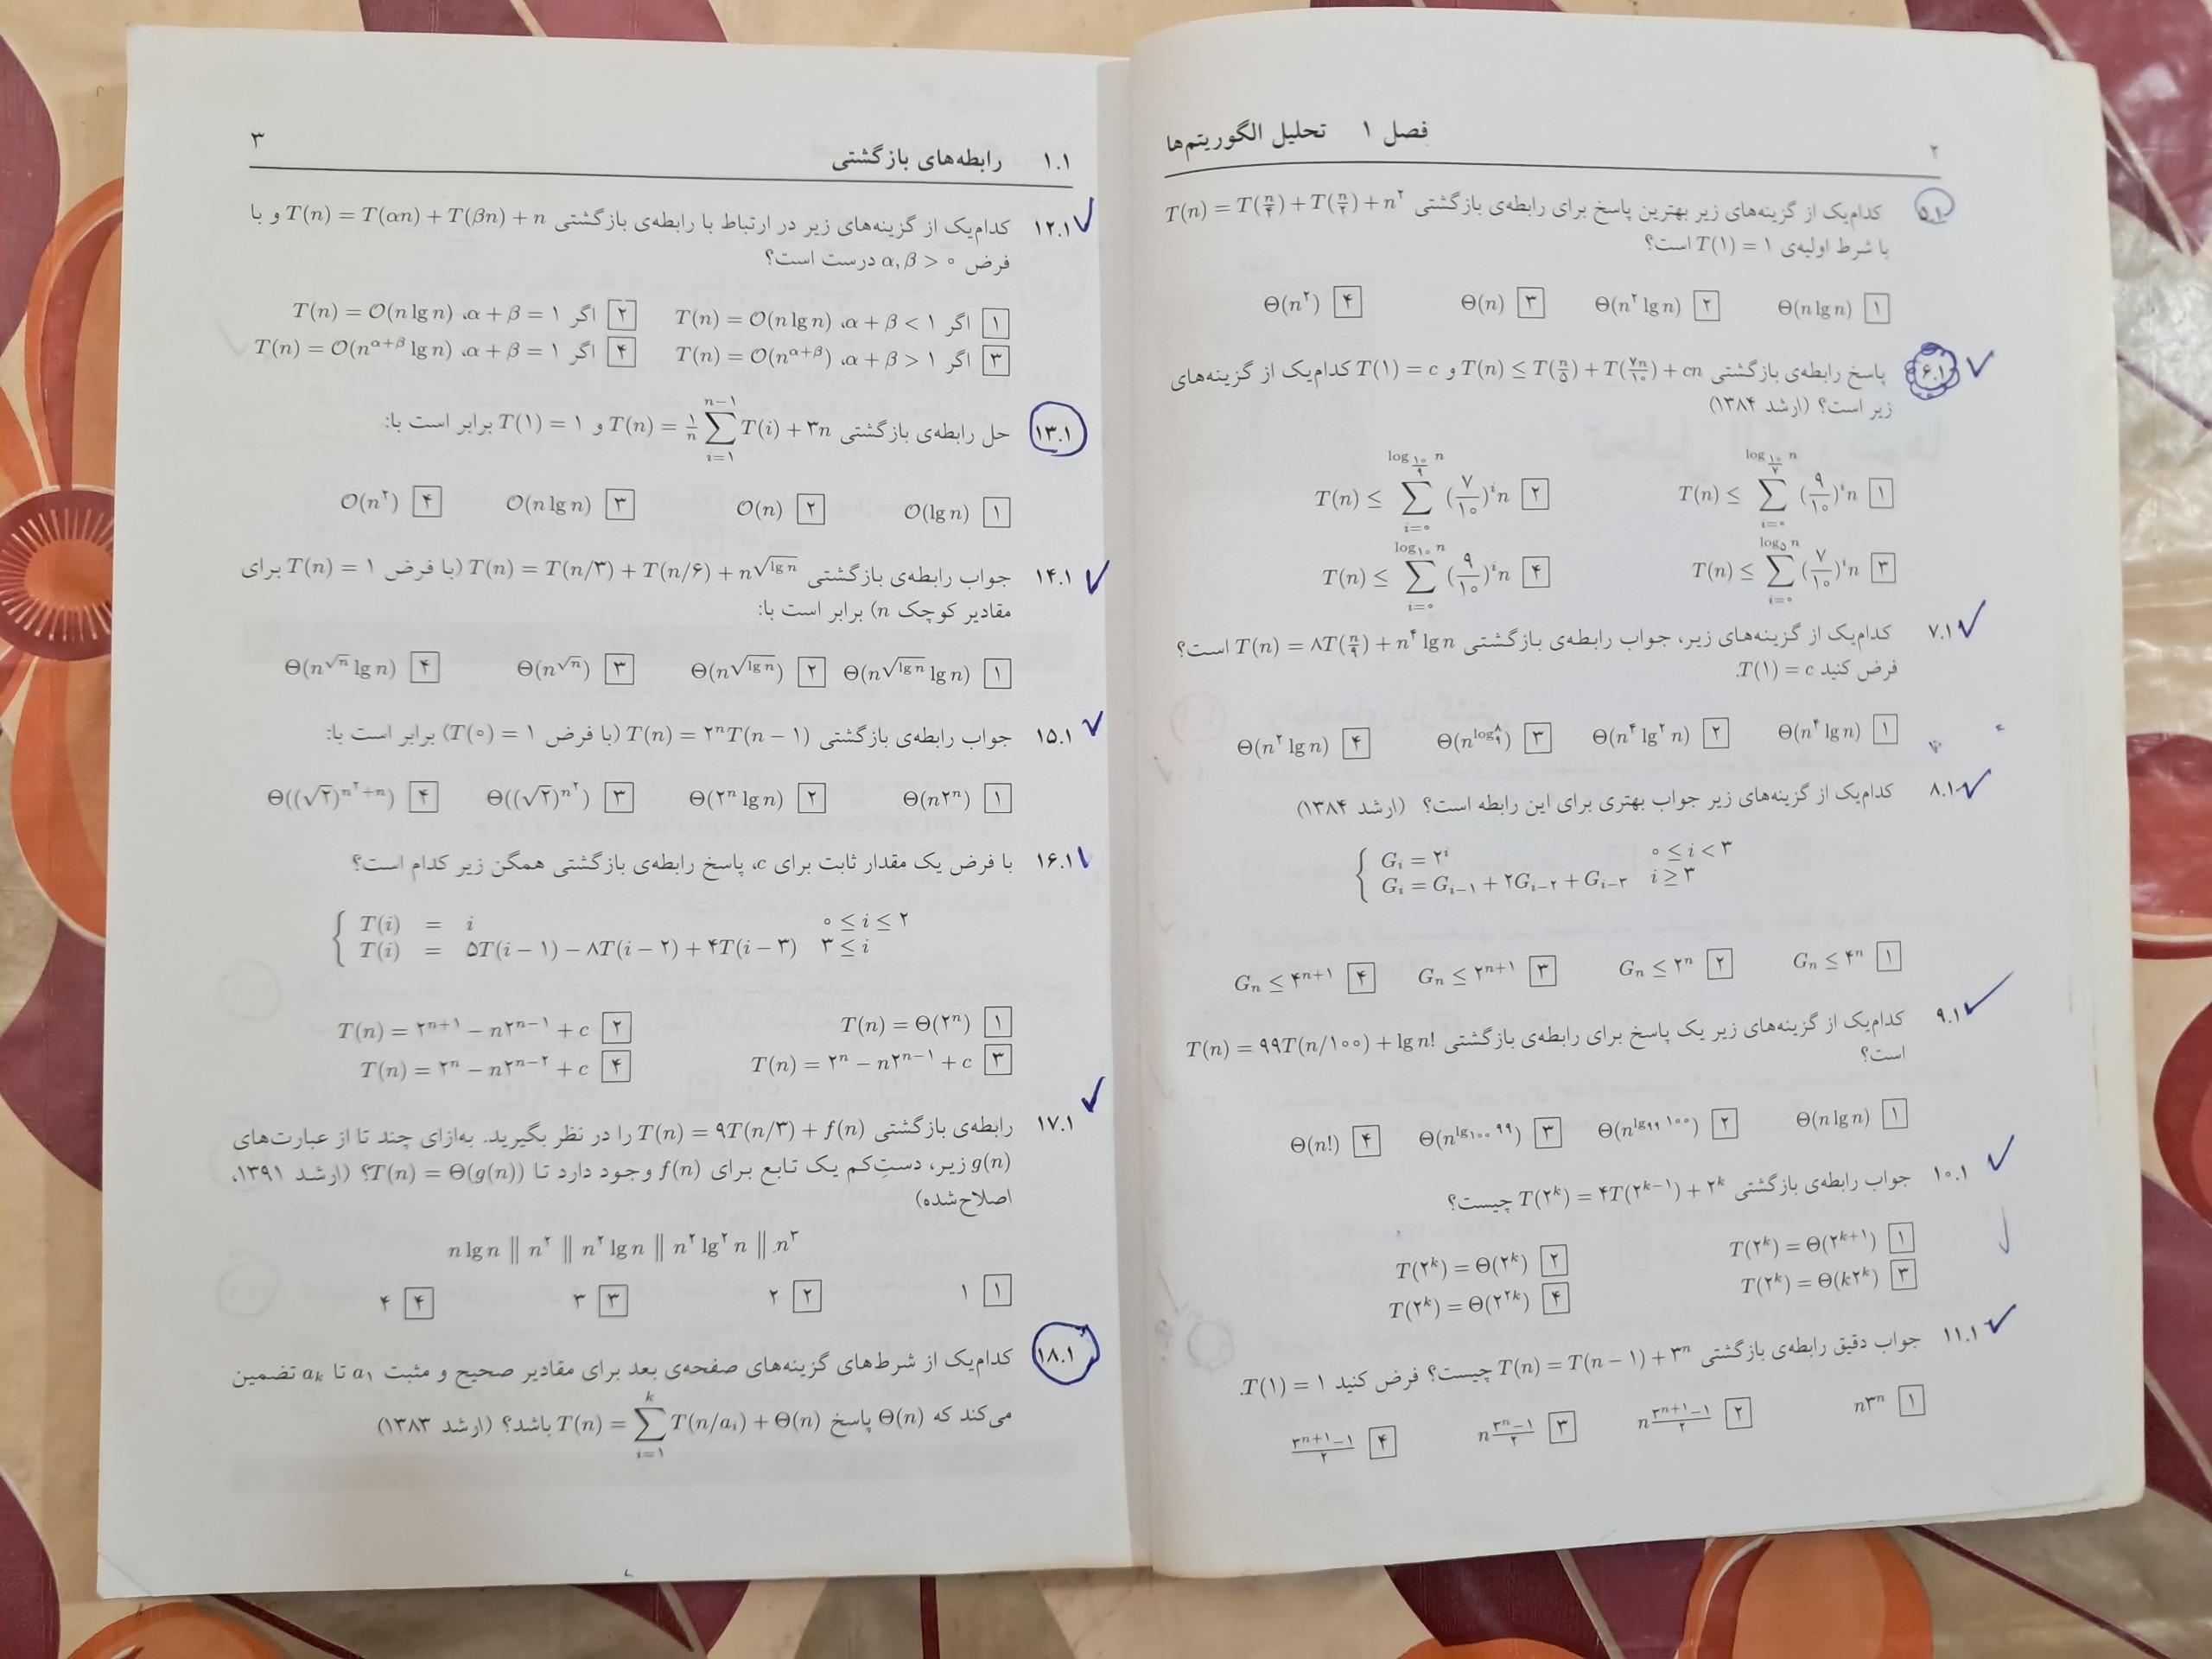 ۲
فصل ۱ تحلیل الگوریتم‌ها
۵.۱ کدام‌یک از گزینه‌های زیر بهترین پاسخ برای رابطه‌ی بازگشتی T(n) = T(n/۴) + T(n/۲) + n^۲
با شرط اولیه‌ی T(۱) = ۱ است؟
۱ Θ(n lg n) ۲ Θ(n^۲ lg n) ۳ Θ(n) ۴ Θ(n^۲)
۶.۱ پاسخ رابطه‌ی بازگشتی T(n) ≤ T(n/۵) + T(۷n/۱۰) + cn و T(۱) = c کدام‌یک از گزینه‌های
زیر است؟ (ارشد ۱۳۸۴)
۱ T(n) ≤ ∑_{i=۰}^{log_{۱۰/۷} n} (۹/۱۰)^i n ۲ T(n) ≤ ∑_{i=۰}^{log_{۱۰/۹} n} (۷/۱۰)^i n
۳ T(n) ≤ ∑_{i=۰}^{log_۵ n} (۷/۱۰)^i n ۴ T(n) ≤ ∑_{i=۰}^{log_{۱۰} n} (۹/۱۰)^i n
۷.۱ کدام‌یک از گزینه‌های زیر، جواب رابطه‌ی بازگشتی T(n) = ۸T(n/۹) + n^۴ lg n است؟
فرض کنید T(۱) = c.
۱ Θ(n^۴ lg n) ۲ Θ(n^۴ lg^۲ n) ۳ Θ(n^{log_۹^۸}) ۴ Θ(n^۲ lg n)
۸.۱ کدام‌یک از گزینه‌های زیر جواب بهتری برای این رابطه است؟ (ارشد ۱۳۸۴)
G_i = ۲^i ۰ ≤ i < ۳
G_i = G_{i−۱} + ۲G_{i−۲} + G_{i−۳} i ≥ ۳
۱ G_n ≤ ۴^n ۲ G_n ≤ ۳^n ۳ G_n ≤ ۲^{n+۱} ۴ G_n ≤ ۴^{n+۱}
۹.۱ کدام‌یک از گزینه‌های زیر یک پاسخ برای رابطه‌ی بازگشتی T(n) = ۹۹T(n/۱۰۰) + lg n!
است؟
۱ Θ(n lg n) ۲ Θ(n^{lg_{۹۹} ۱۰۰}) ۳ Θ(n^{lg_{۱۰۰} ۹۹}) ۴ Θ(n!)
۱۰.۱ جواب رابطه‌ی بازگشتی T(۲^k) = ۴T(۲^{k−۱}) + ۲^k چیست؟
۱ T(۲^k) = Θ(۲^{k+۱}) ۲ T(۲^k) = Θ(۲^k)
۳ T(۲^k) = Θ(k۲^k) ۴ T(۲^k) = Θ(۲^{۲k})
۱۱.۱ جواب دقیق رابطه‌ی بازگشتی T(n) = T(n − ۱) + ۳^n چیست؟ فرض کنید T(۱) = ۱.
۱ n۳^n ۲ n (۳^{n+۱}−۱)/۲ ۳ n (۳^n−۱)/۲ ۴ (۳^{n+۱}−۱)/۲
۱.۱ رابطه‌های بازگشتی
۳
۱۲.۱ کدام‌یک از گزینه‌های زیر در ارتباط با رابطه‌ی بازگشتی T(n) = T(αn) + T(βn) + n و با
فرض α, β > ۰ درست است؟
۱ اگر α + β < ۱، T(n) = O(n lg n) ۲ اگر α + β = ۱، T(n) = O(n lg n)
۳ اگر α + β > ۱، T(n) = O(n^{α+β}) ۴ اگر α + β = ۱، T(n) = O(n^{α+β} lg n)
۱۳.۱ حل رابطه‌ی بازگشتی T(n) = ۱/n ∑_{i=۱}^{n−۱} T(i) + ۳n و T(۱) = ۱ برابر است با:
۱ O(lg n) ۲ O(n) ۳ O(n lg n) ۴ O(n^۲)
۱۴.۱ جواب رابطه‌ی بازگشتی T(n) = T(n/۳) + T(n/۶) + n^{√lg n} (با فرض T(n) = ۱ برای
مقادیر کوچک n) برابر است با:
۱ Θ(n^{√lg n} lg n) ۲ Θ(n^{√lg n}) ۳ Θ(n^{√n}) ۴ Θ(n^{√n} lg n)
۱۵.۱ جواب رابطه‌ی بازگشتی T(n) = ۲^n T(n − ۱) (با فرض T(۰) = ۱) برابر است با:
۱ Θ(n۲^n) ۲ Θ(۲^n lg n) ۳ Θ((√۲)^{n^۲}) ۴ Θ((√۲)^{n^۲+n})
۱۶.۱ با فرض یک مقدار ثابت برای c، پاسخ رابطه‌ی بازگشتی همگن زیر کدام است؟
T(i) = i ۰ ≤ i ≤ ۲
T(i) = ۵T(i − ۱) − ۸T(i − ۲) + ۴T(i − ۳) ۳ ≤ i
۱ T(n) = Θ(۲^n) ۲ T(n) = ۲^{n+۱} − n۲^{n−۱} + c
۳ T(n) = ۲^n − n۲^{n−۱} + c ۴ T(n) = ۲^n − n۲^{n−۲} + c
۱۷.۱ رابطه‌ی بازگشتی T(n) = ۹T(n/۳) + f(n) را در نظر بگیرید. به‌ازای چند تا از عبارت‌های
g(n) زیر، دستِ‌کم یک تابع برای f(n) وجود دارد تا T(n) = Θ(g(n))؟ (ارشد ۱۳۹۱،
اصلاح‌شده)
n lg n ‖ n^۲ ‖ n^۲ lg n ‖ n^۲ lg^۲ n ‖ n^۳
۱ ۱ ۲ ۲ ۳ ۳ ۴ ۴
۱۸.۱ کدام‌یک از شرط‌های گزینه‌های صفحه‌ی بعد برای مقادیر صحیح و مثبت a_۱ تا a_k تضمین
می‌کند که Θ(n) پاسخ T(n) = ∑_{i=۱}^{k} T(n/a_i) + Θ(n) باشد؟ (ارشد ۱۳۸۳)